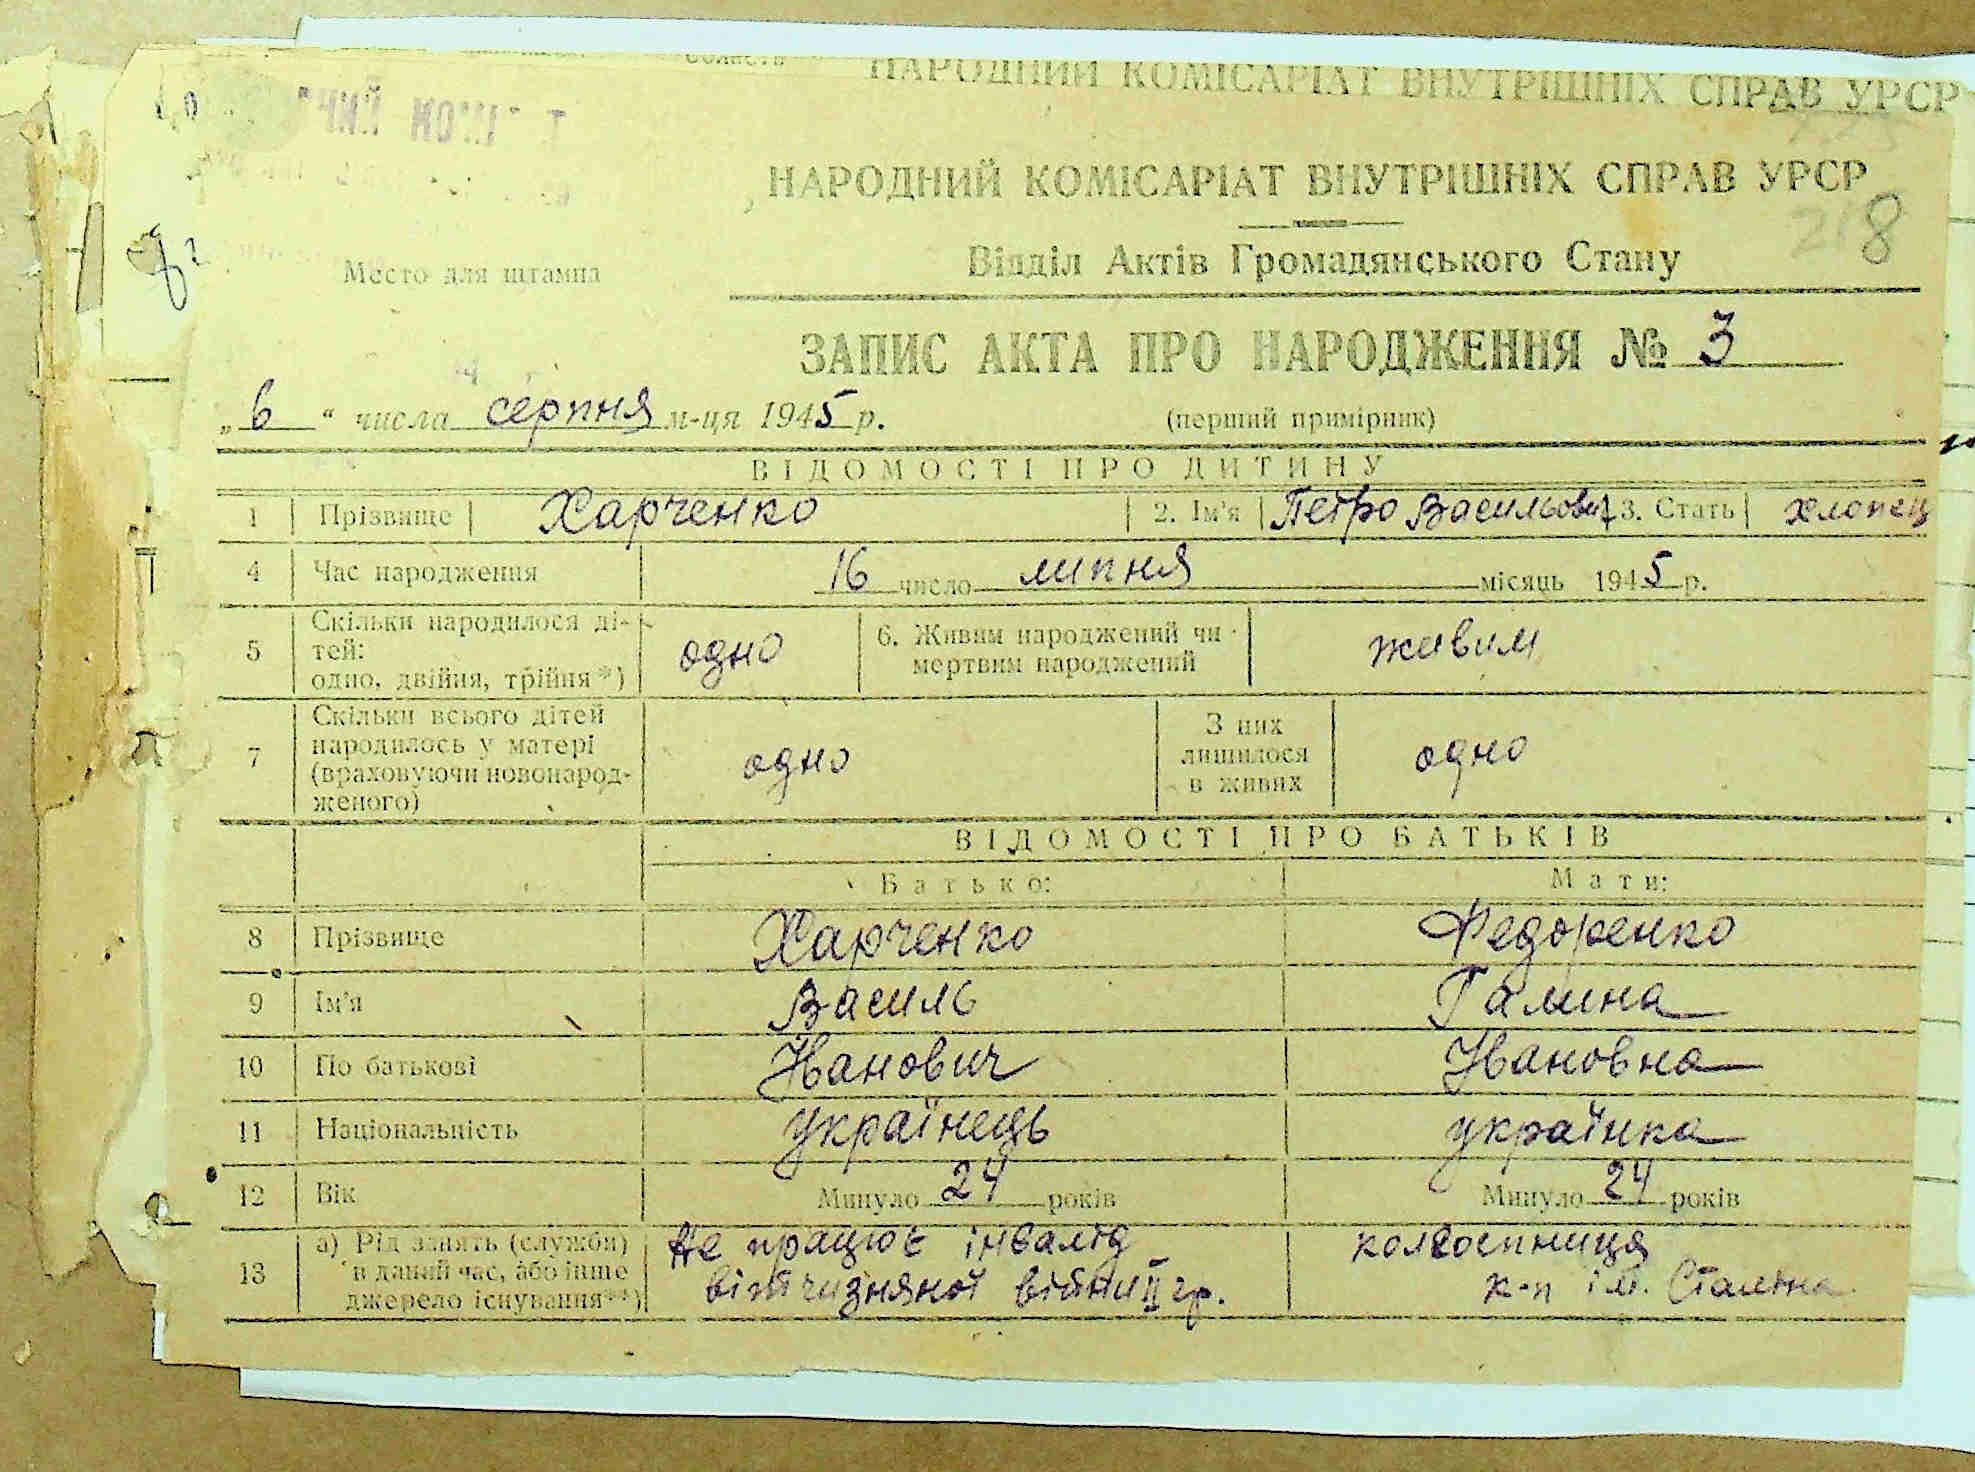 НАРОДНИЙ КОМІСАРІАТ ВНУТРІШНІХ СПРАВ УРСР
НАРОДНИЙ КОМІСАРІАТ ВНУТРІШНІХ СПРАВ УРСР
8
Відділ Актів Громадянського Стану
Место для штампа
ЗАПИС АКТА ПРО НАРОДЖЕННЯ № 3
„ 6 “ числа серпня м-ця 1945 р. (перший примірник)
ВІДОМОСТІ ПРО ДИТИНУ
1 Прізвище Харченко 2. Ім'я Петро Васильович 3. Стать хлопец
4 Час народження 16 число липня місяць 1945 р.
5 Скільки народилося ді-
тей:
одно, двійня, трійня*) одно 6. Живим народжений чи
мертвим народжений живим
7 Скільки всього дітей
народилось у матері
(враховуючи новонарод-
женого) одно З них
лишилося
в живих одно
ВІДОМОСТІ ПРО БАТЬКІВ
Батько: Мати:
8 Прізвище Харченко Федоренко
9 Ім'я Василь Галина
10 По батькові Іванович Івановна
11 Національність українець українка
12 Вік Минуло 24 років Минуло 24 років
13 а) Рід занять (служби)
в даний час, або інше
джерело існування**) Не працює інвалід
вітчизняної війни II гр. колгоспниця
к-п ім. Сталіна